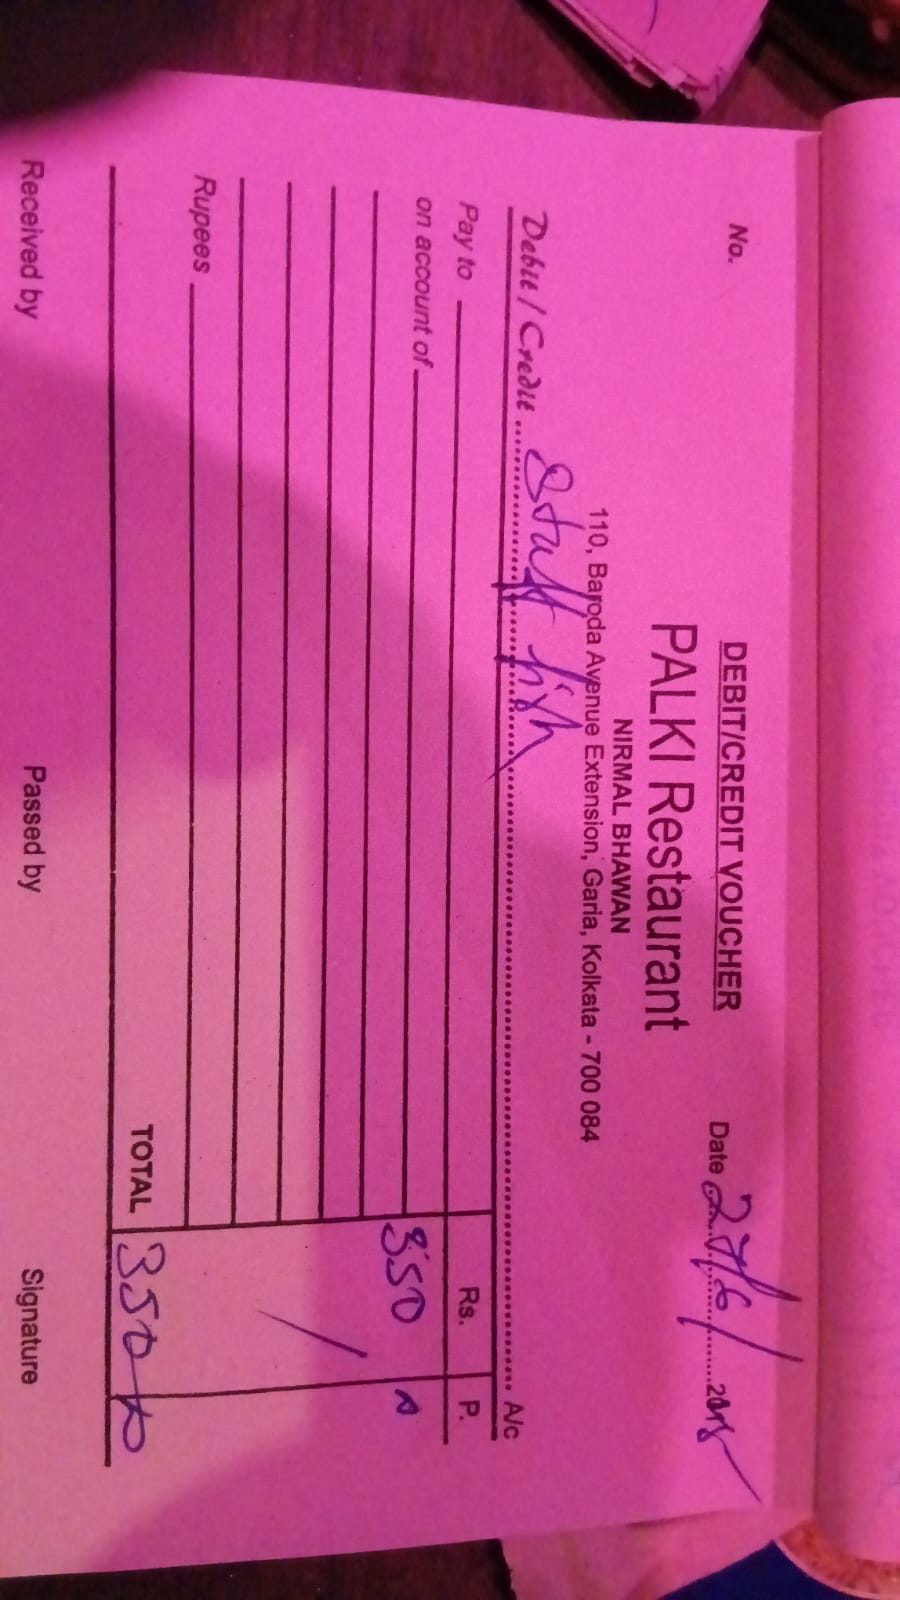 DEBIT/CREDIT VOUCHER
No. Date 27/6/
PALKI Restaurant
NIRMAL BHAWAN
110, Baroda Avenue Extension, Garia, Kolkata - 700 084
Debit / Credit Staff fish A/c
Pay to Rs. P.
on account of 350
Rupees
TOTAL 350
Received by Passed by Signature